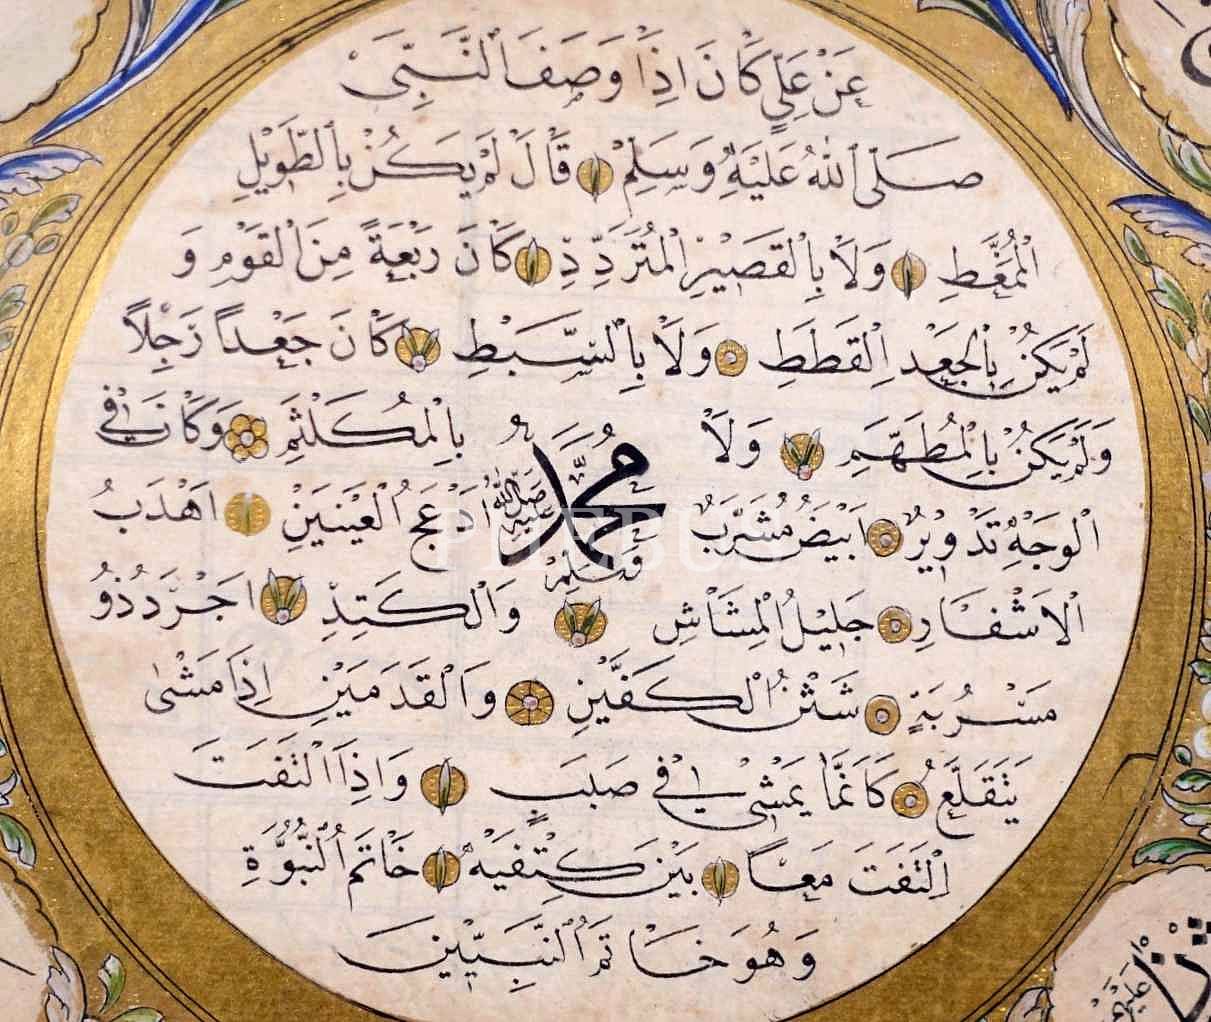 عَنْ عَلِيٍّ كَانَ اِذَا وَصَفَ النَّبِيَّ
صَلَّى اللهُ عَلَيْهِ وَسَلَّمْ قَالَ لَمْ يَكُنْ بِالطَّوِيلِ
الْمُمَّغَّطِ وَلَا بِالْقَصِيرِ الْمُتَرَدِّدِ كَانَ رَبْعَةً مِنَ الْقَوْمِ وَ
لَمْ يَكُنْ بِالْجَعْدِ الْقَطَطِ وَلَا بِالسَّبِطِ كَانَ جَعْداً رَجِلاً
وَلَمْ يَكُنْ بِالْمُطَهَّمِ وَلَا بِالْمُكَلْثَمِ وَكَانَ فِي
الْوَجْهِ تَدْوِيرٌ اَبْيَضُ مُشْرَبٌ مُحَمَّد صَلَّى اللهُ عَلَيْهِ وَسَلَّمْ اَدْعَجُ الْعَيْنَيْنِ اَهْدَبُ
الْاَشْفَارِ جَلِيلُ الْمُشَاشِ وَالْكَتِدِ اَجْرَدُ ذُو
مَسْرُبَةٍ شَثْنُ الْكَفَّيْنِ وَالْقَدَمَيْنِ اِذَا مَشٰى
يَتَقَلَّعُ كَاَنَّمَا يَمْشِي فِي صَبَبٍ وَاِذَا الْتَفَتَ
الْتَفَتَ مَعاً بَيْنَ كَتِفَيْهِ خَاتَمُ النُّبُوَّةِ
وَهُوَ خَاتَمُ النَّبِيِّينَ
PHEBUS